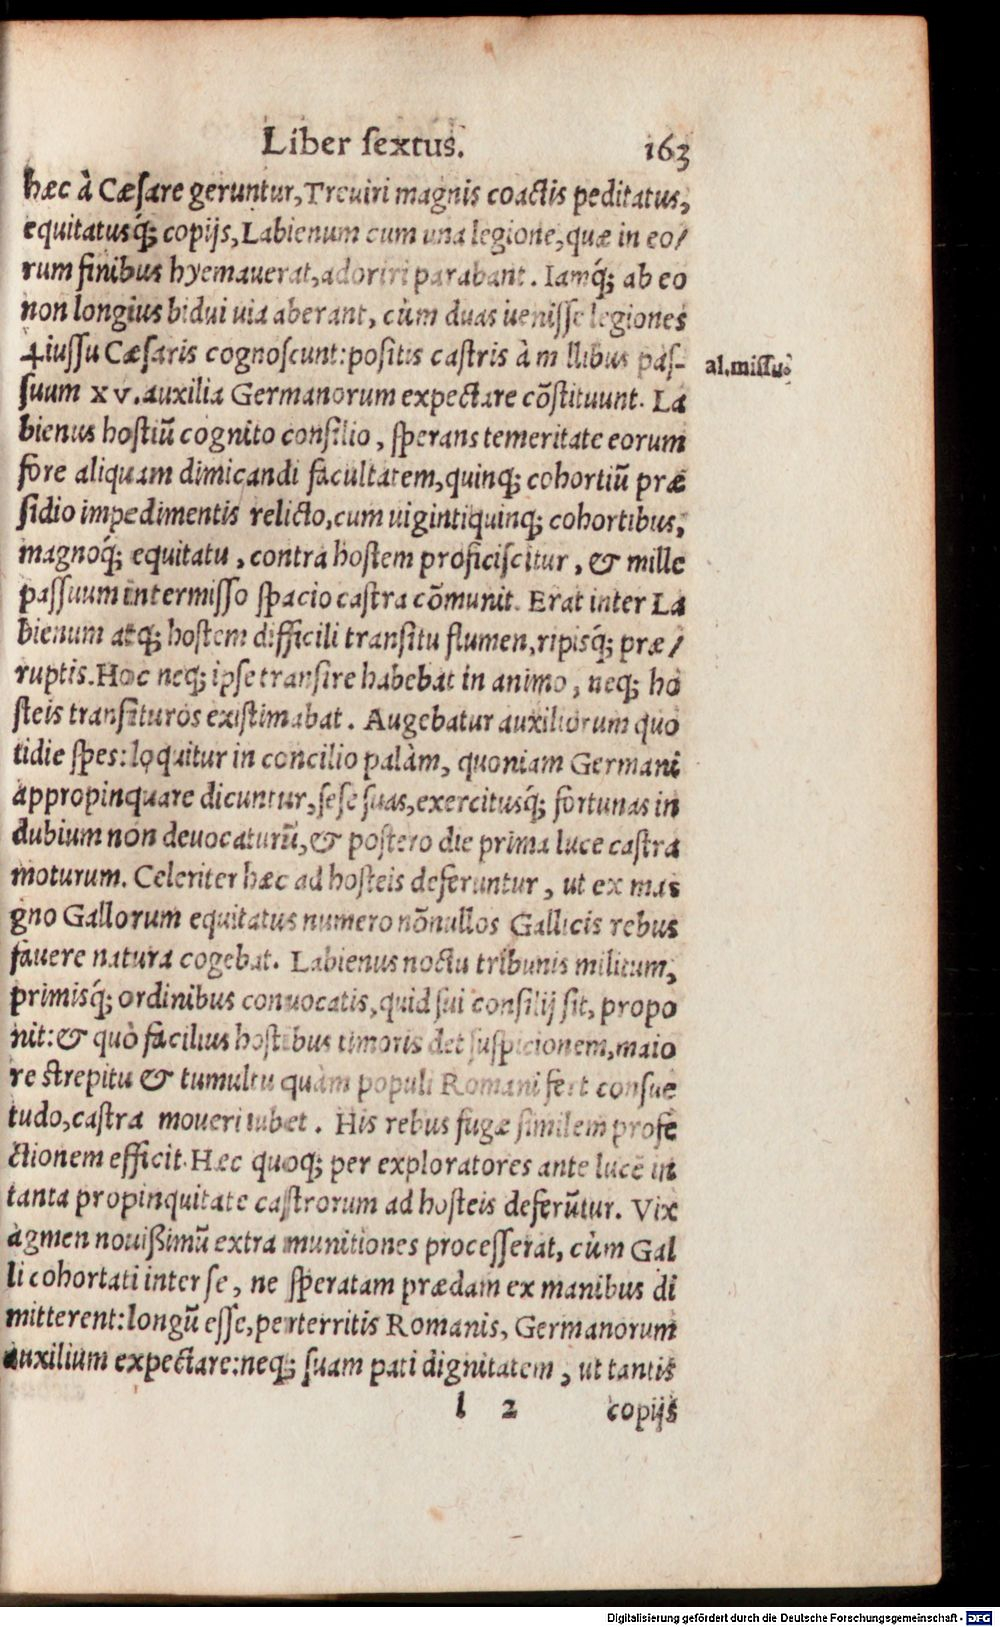 Liber ſextus. 163
hæc à Cæſare geruntur, Treuiri magnis coactis peditatus,
equitatusq́; copijs, Labienum cum una legione, quæ in eo/
rum finibus hyemauerat, adoriri parabant. Iamq́; ab eo
non longius bidui uia aberant, cùm duas ueniſſe legiones
iuſſu Cæſaris cognoſcunt: poſitis caſtris à m llibus paſ-
al. miſſu
ſuum XV. auxilia Germanorum expectare cõſtituunt. La
bienus hoſtiũ cognito conſilio, ſperans temeritate eorum
fore aliquam dimicandi facultatem, quinq; cohortiũ præ
ſidio impedimentis relicto, cum uigintiquinq; cohortibus,
magnoq́; equitatu, contra hoſtem proficiſcitur, & mille
paſſuum intermiſſo ſpacio caſtra cõmunit. Erat inter La
bienum atq; hoſtem difficili tranſitu flumen, ripisq́; præ/
ruptis. Hoc neq; ipſe tranſire habebat in animo, neq; ho
ſteis tranſituros exiſtimabat. Augebatur auxiliorum quo
tidie ſpes: loquitur in concilio palàm, quoniam Germani
appropinquare dicuntur, ſeſe ſuas, exercitusq́; fortunas in
dubium non deuocaturũ, & poſtero die prima luce caſtra
moturum. Celeriter hæc ad hoſteis deferuntur, ut ex ma
gno Gallorum equitatus numero nõnullos Gallicis rebus
fauere natura cogebat. Labienus noctu tribunis militum,
primisq́; ordinibus conuocatis, quid ſui conſilij ſit, propo
nit: & quò facilius hoſtibus timoris det ſuſpicionem, maio
re ſtrepitu & tumultu quàm populi Romani fert conſue
tudo, caſtra moueri iubet. His rebus fugæ ſimilem profe
ctionem efficit. Hæc quoq; per exploratores ante lucẽ in
tanta propinquitate caſtrorum ad hoſteis deferũtur. Vix
agmen nouißimũ extra munitiones proceſſerat, cùm Gal
li cohortati inter ſe, ne ſperatam prædam ex manibus di
mitterent: longũ eſſe, perterritis Romanis, Germanorum
auxilium expectare: neq; ſuam pati dignitatem, ut tantis
l 2 copijs
Digitalisierung gefördert durch die Deutsche Forschungsgemeinschaft - DFG